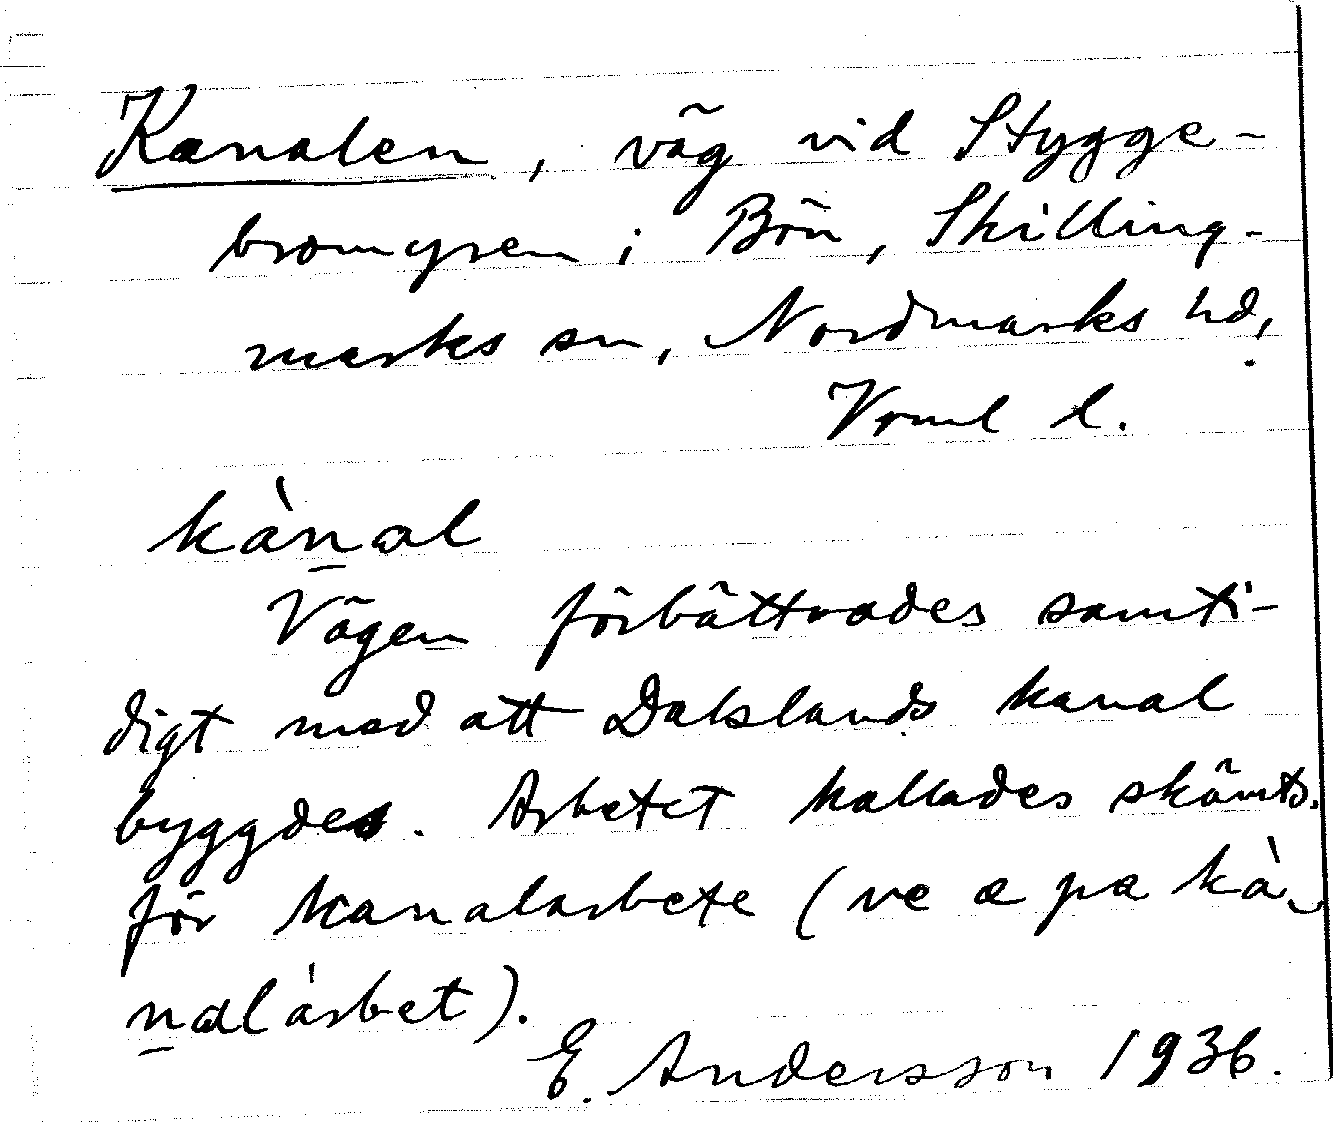 Kanalen, väg vid Stygge-
bromyren i Bön, Skilling-
marks sn, Nordmarks hd,
Vrml l.
kànal
Vägen förbättrades samti-
digt med att Dalslands kanal
byggdes. Arbetet kallades skämts.
för kanalarbete (ve a pa kà-
nalárbet).
E. Andersson 1936.